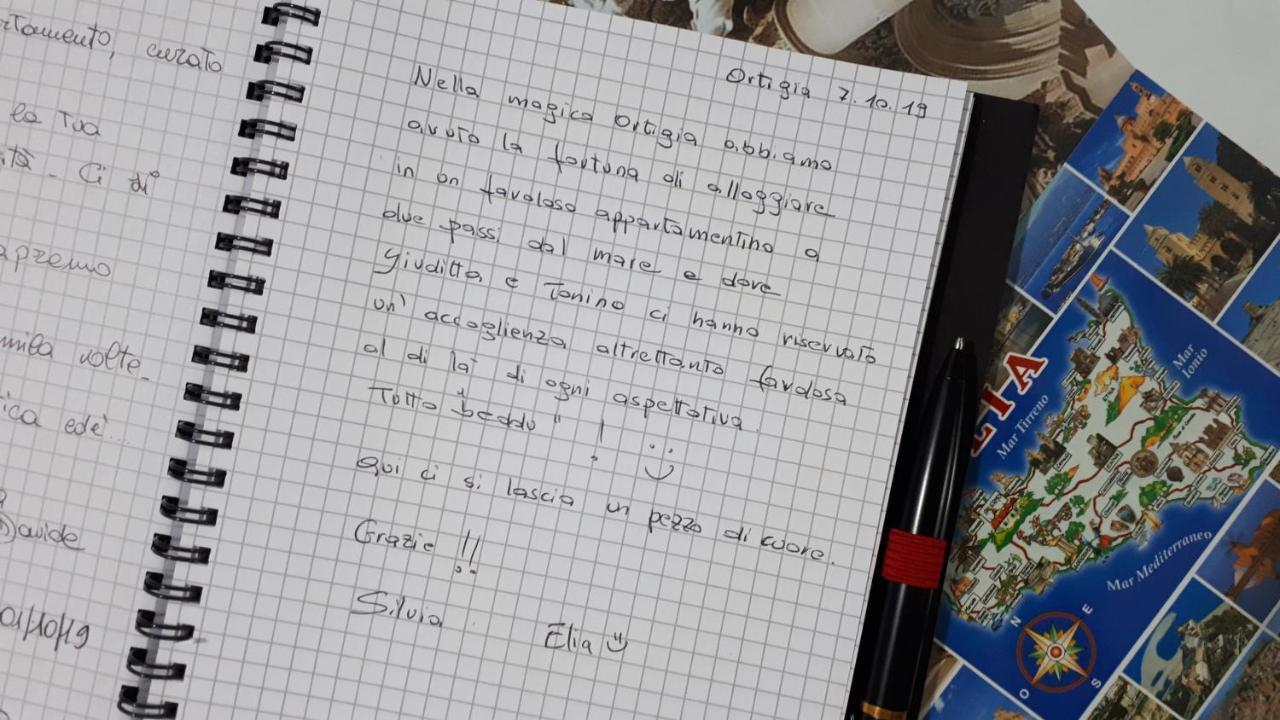 rtamento, curato
la Tua
ità - Ci di
apremo
mila volte -
ica ed è...
Davide
Ortigia 7.10.19
Nella magica Ortigia abbiamo
avuto la fortuna di alloggiare
in un favoloso appartamentino a
due passi dal mare e dove
Giuditta e Tonino ci hanno riservato
un' accoglienza altrettanto favolosa
al di là di ogni aspettativa.
Tutto beddu" ! :)
Qui ci si lascia un pezzo di cuore.
Grazie !!
Silvia Elia
LIA
Mar Tirreno
Mar Ionio
Mar Mediterraneo
N
E
S
O